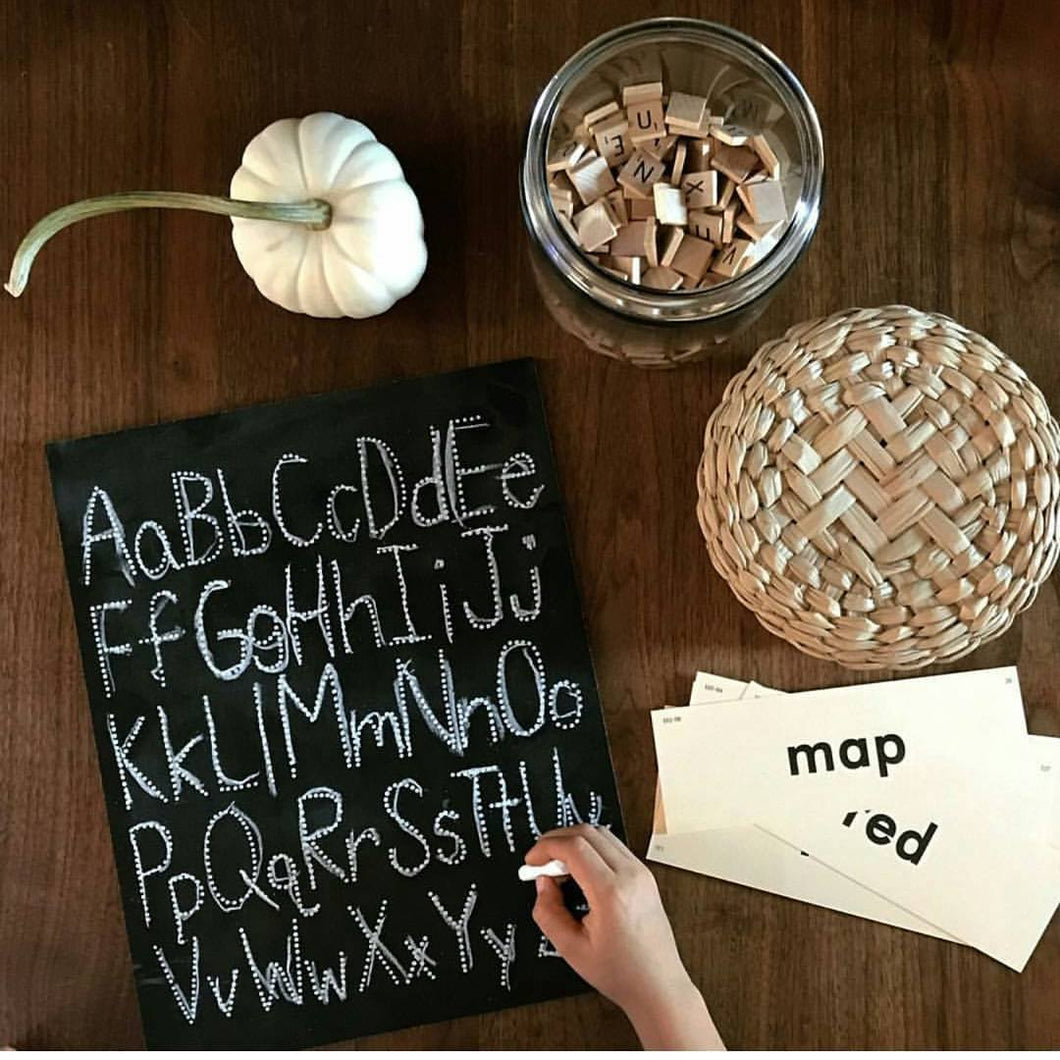 U
E
N
X
V
AaBbCcDdEe
FfGgHhIiJj
KkLlMmNnOo
PpQqRrSsTtUu
VvWwXxYy
map
red